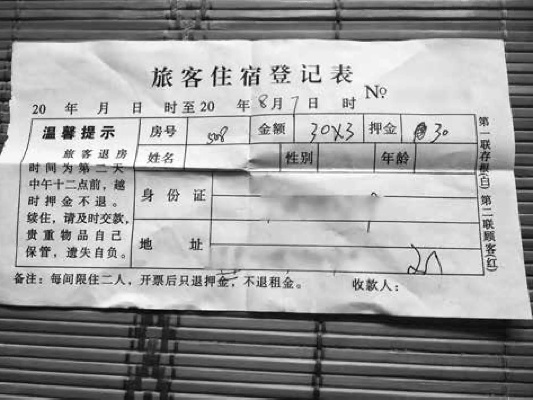 旅客住宿登记表
20 年 月 日 时至20 年8月7日 时 №
温馨提示
旅客退房
时间为第二天
中午十二点前,越
时押金不退。
续住,请及时交款,
贵重物品自己
保管,遗失自负。
房号 508 金额 30X3 押金 30
姓名 性别 年龄
身份证
地址
20
第一联存根(白) 第二联顾客(红)
备注:每间限住二人,开票后只退押金,不退租金。 收款人: